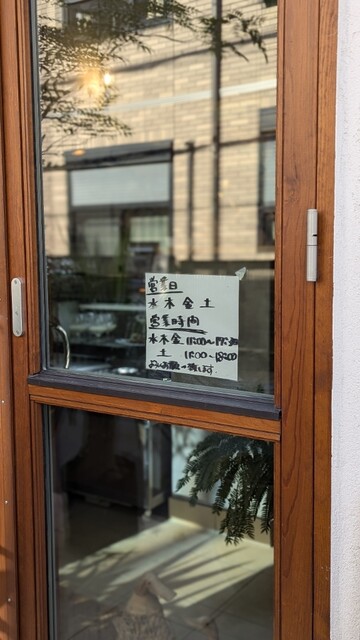 営業日
水木金土
営業時間
水木金 11:00〜17:30
土 11:00〜18:00
お願い致します